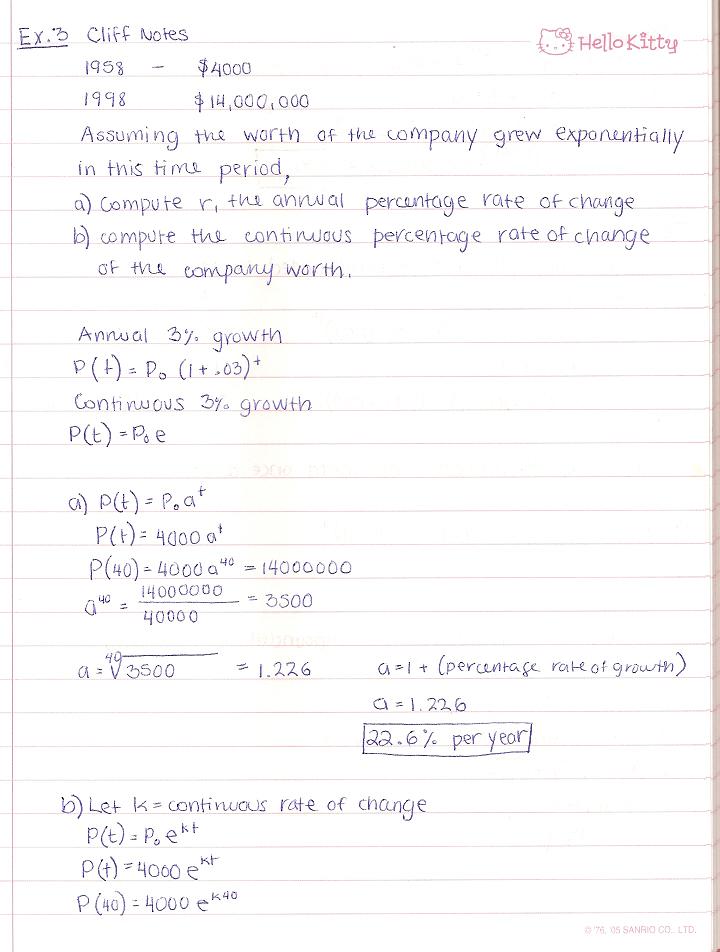 Ex.3 Cliff Notes
Hello Kitty
1958 - $4000
1998 $14,000,000
Assuming the worth of the company grew exponentially
in this time period,
a) Compute r, the annual percentage rate of change
b) compute the continuous percentage rate of change
of the company worth.
Annual 3% growth
P(t) = P₀ (1+.03)ᵗ
Continuous 3% growth
P(t) = P₀ e
a) P(t) = P₀aᵗ
P(t) = 4000 aᵗ
P(40) = 4000 a⁴⁰ = 14000000
a⁴⁰ = 14000000 / 40000 = 3500
a = ⁴⁰√3500 = 1.226 a = 1 + (percentage rate of growth)
a = 1.226
22.6% per year
b) Let k = continuous rate of change
P(t) = P₀ eᵏᵗ
P(t) = 4000 eᵏᵗ
P(40) = 4000 eᵏ⁴⁰
© '76, '05 SANRIO CO., LTD.